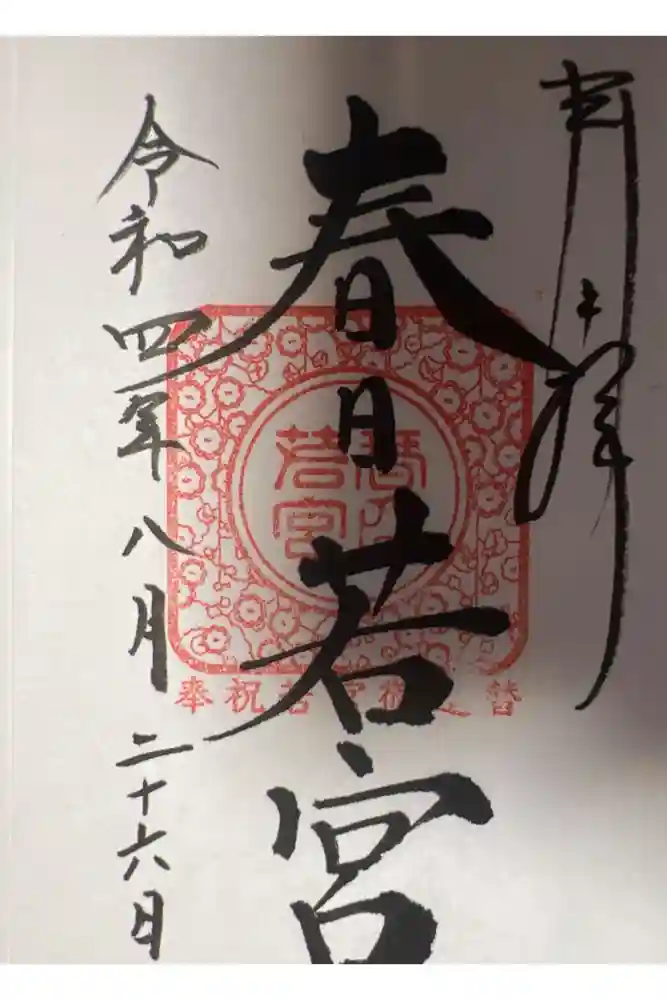 奉拝
春日若宮
春日
若宮
奉祝若宮御造替
令和四年八月二十六日